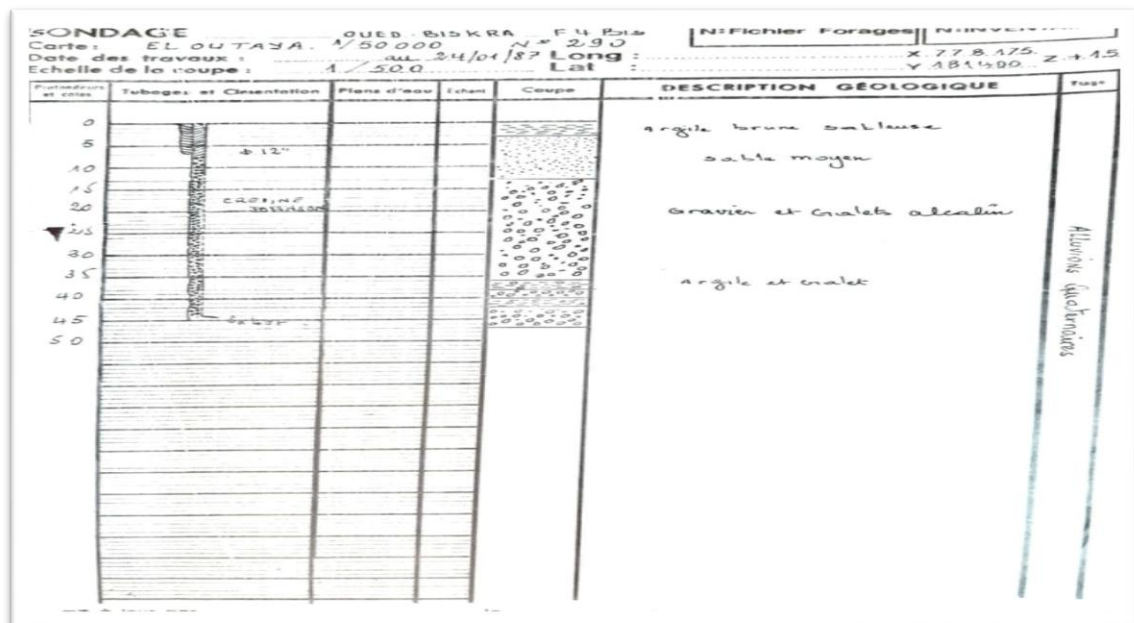 SONDAGE OUED BISKRA F4 Bis N° Fichier Forages
Carte: EL OUTAYA. 1/50000 N° 290
Date des travaux: au 24/01/87 Long: X 778.175.
Echelle de la coupe: 1/500 Lat: Y 181400 Z +15
Profondeurs et cotes Tubages et Cimentation Plans d'eau Echant Coupe DESCRIPTION GÉOLOGIQUE Etage
0 Argile brune sableuse
5 sable moyen
ϕ 12"
10
15
CREPINE
20 Gravier et Galets
25
30
35 Argile et Galet
40
45
50
Alluvions Quaternaires